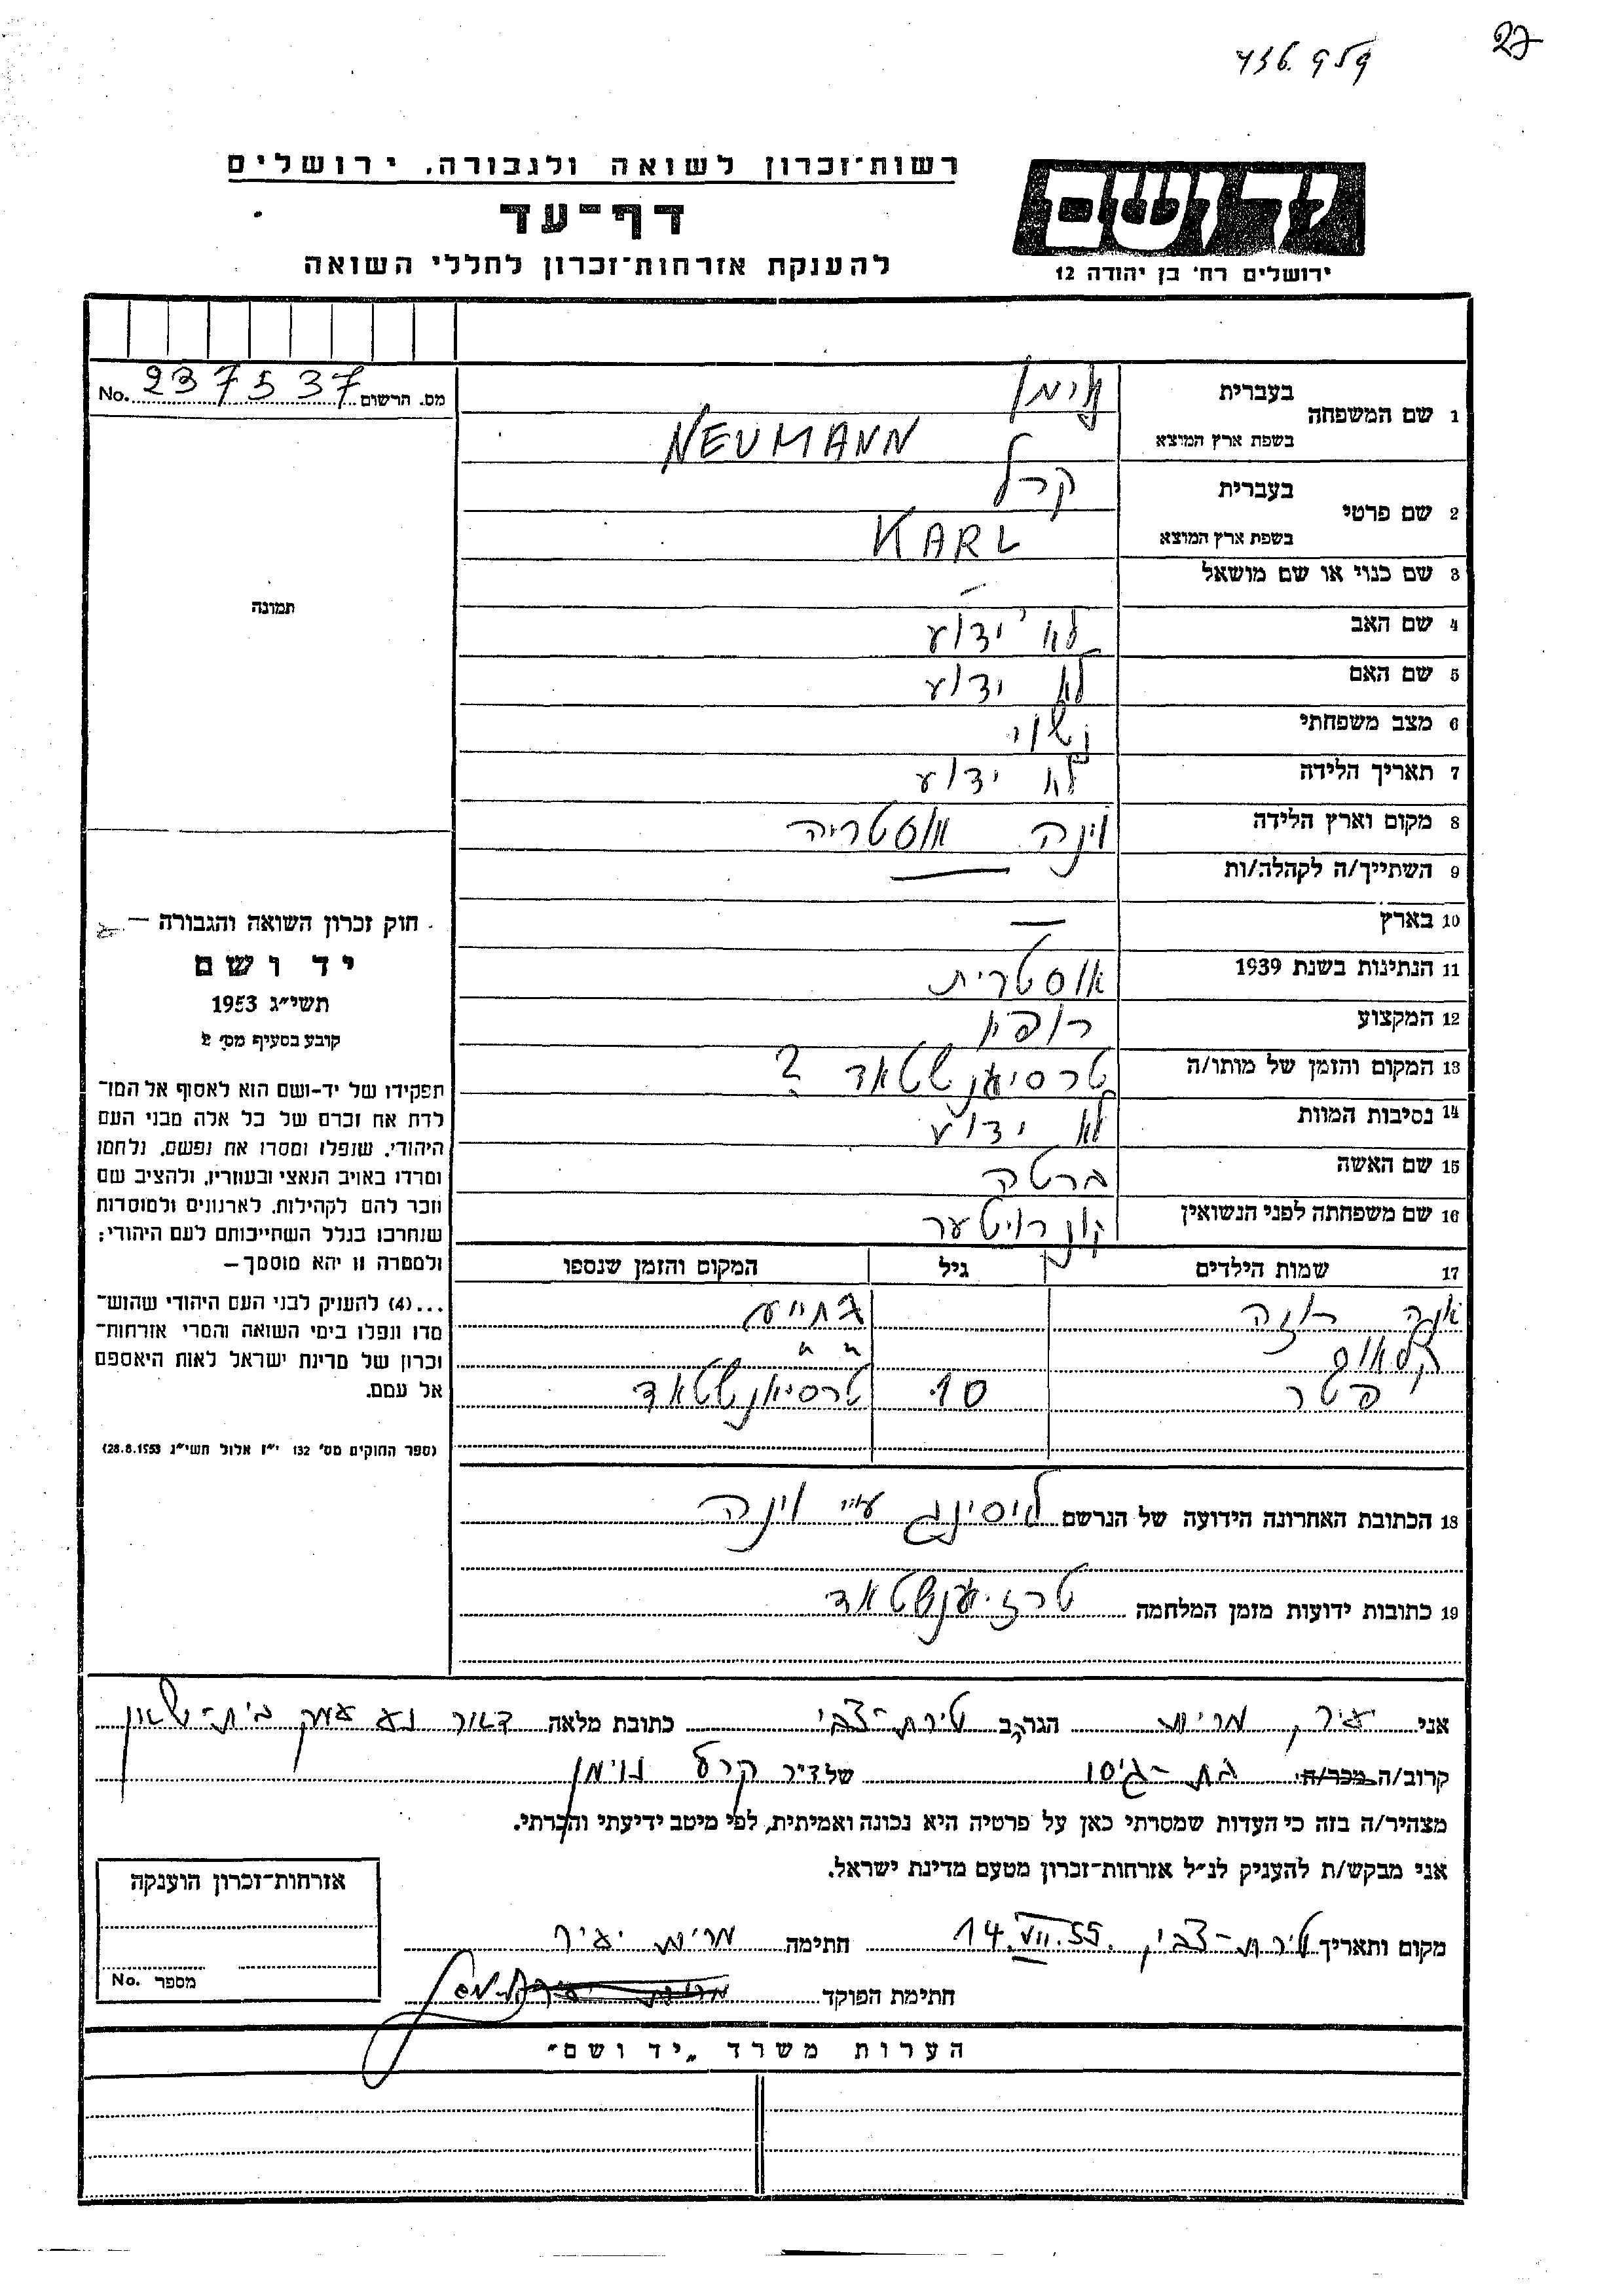 27
רשות־זכרון לשואה ולגבורה, ירושלים
דף־עד
להענקת אזרחות־זכרון לחללי השואה
יד ושם
ירושלים רח' בן יהודה 12
מס. הרשום 237537 No.
1 שם המשפחה בעברית נוימן
בשפת ארץ המוצא NEUMANN
2 שם פרטי בעברית קרל
בשפת ארץ המוצא KARL
3 שם כנוי או שם מושאל –
4 שם האב לא ידוע
5 שם האם לא ידוע
6 מצב משפחתי נשוי
7 תאריך הלידה לא ידוע
8 מקום וארץ הלידה וינה אוסטריה
9 השתייך/ה לקהלה/ות —
10 בארץ —
11 הנתינות בשנת 1939 אוסטרית
12 המקצוע רופא
13 המקום והזמן של מותו/ה טרסיענשטאד ?
14 נסיבות המוות לא ידוע
15 שם האשה ברטה
16 שם משפחתה לפני הנשואין
17 שמות הילדים גיל המקום והזמן שנספו
אנה רוזה
קלאוס " "
פטר 10 טרסיאנשטאד
18 הכתובת האחרונה הידועה של הנרשם ליסינג ע"י וינה
19 כתובות ידועות מזמן המלחמה טרזיענשטאד
תמונה
חוק זכרון השואה והגבורה —
יד ושם
תשי"ג 1953
קובע בסעיף מס' 2
תפקידו של יד-ושם הוא לאסוף אל המו־
לדת את זכרם של כל אלה מבני העם
היהודי, שנפלו ומסרו את נפשם, נלחמו
ומרדו באויב הנאצי ובעוזריו, ולהציב שם
וזכר להם לקהילות, לארגונים ולמוסדות
שנחרבו בגלל השתייכותם לעם היהודי;
ולמטרה זו יהא מוסמך—
...(4) להעניק לבני העם היהודי שהוש־
מדו ונפלו בימי השואה והמרי אזרחות־
זכרון של מדינת ישראל לאות היאספם
אל עמם.
(ספר החוקים מס' 132 י"ז אלול תשי"ג 28.8.1953)
אני יעיר מרים הגר/ה ב טירת-צבי כתובת מלאה דאר נע עמק בית-שאן
קרוב/ה מכר/ה גת-גיסו של ד"ר קרל נוימן
מצהיר/ה בזה כי העדות שמסרתי כאן על פרטיה היא נכונה ואמיתית, לפי מיטב ידיעתי והכרתי.
אני מבקש/ת להעניק לנ"ל אזרחות-זכרון מטעם מדינת ישראל.
מקום ותאריך טירת-צבי, 14.VII.55 חתימה מרים יעיר
חתימת הפוקד
אזרחות־זכרון הוענקה
מספר No.
הערות משרד „יד ושם"